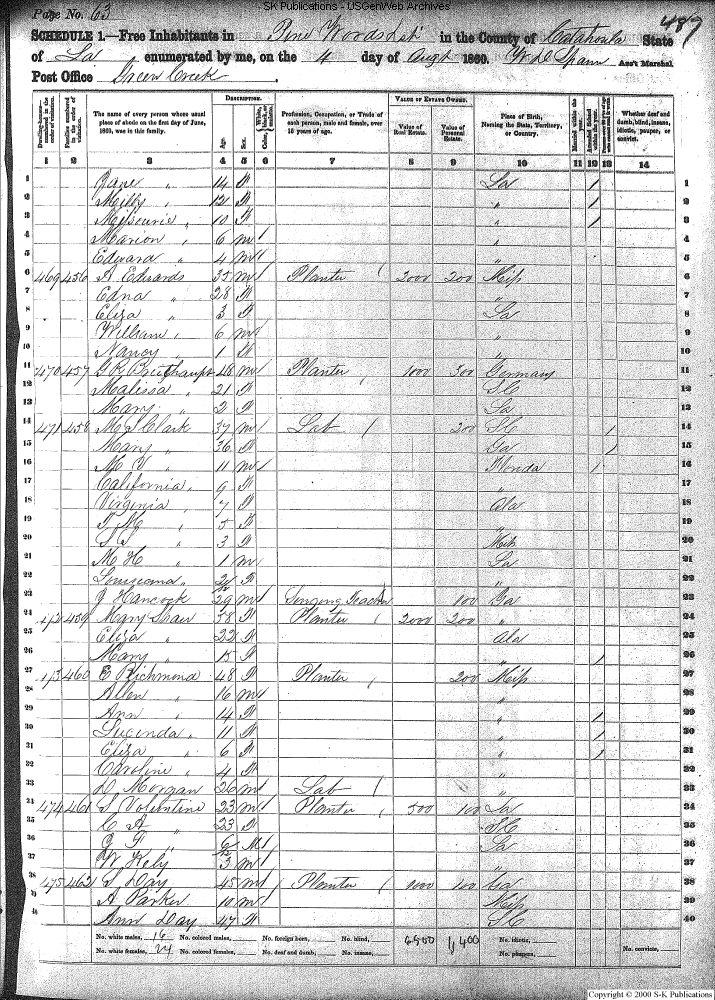 SK Publications - USGenWeb Archives
Page No. 63
487
SCHEDULE 1.—Free Inhabitants in Piney Woods Dist in the County of Catahoula State
of La enumerated by me, on the 4 day of Augt 1860. Ass't Marshal
Post Office Green Creek
Dwelling-houses—numbered in the order of visitation.
Families numbered in the order of visitation.
The name of every person whose usual place of abode on the first day of June, 1860, was in this family.
DESCRIPTION.
Age.
Sex.
Profession, Occupation, or Trade of each person, male and female, over 15 years of age.
VALUE OF ESTATE OWNED.
Value of Real Estate.
Value of Personal Estate.
Place of Birth, Naming the State, Territory, or Country.
Married within the year.
Attended School within the year.
Whether deaf and dumb, blind, insane, idiotic, pauper, or convict.
1 2 3 4 5 6 7 8 9 10 11 12 13 14
1 Jane " 14 F La / 1
2 Milly " 12 F " / 2
3 Missourie " 10 F " / 3
4 Marion " 6 m / " 4
5 Edward " 4 m / " 5
6 469 456 A Edwards 35 m / Planter / 2000 200 Miss 6
7 Edna " 28 F " 7
8 Eliza " 3 F La 8
9 William " 6 m " 9
10 Nancy " 1 F " 10
11 470 457 G R Breithaupt 48 m / Planter 1000 300 Germany 11
12 Malissa " 21 F SC 12
13 Mary " 2 F La 13
14 471 458 M S Clark 37 m / Lab / 200 SC / 14
15 Mary " 36 F Ga / 15
16 M V " 11 m / Florida / 16
17 California " 9 F " 17
18 Virginia " 7 F Ala 18
19 " 5 F " 19
20 " 3 F Miss 20
21 M H " 1 m La 21
22 Louisiana " F " 22
23 J Hancock 29 m / Singing Teacher 100 Ga 23
24 472 459 Mary Shaw 38 F Planter / 2000 200 " 24
25 Eliza " 22 F Ala 25
26 Mary " 15 F " / 26
27 473 460 E Richmond 48 F Planter / 200 Miss 27
28 Allen " 16 m / " 28
29 Ann " 14 F " / 29
30 Lucinda " 11 F " / 30
31 Eliza " 6 F " / 31
32 Caroline " 4 F " 32
33 D Morgan 26 m / Lab / " 33
34 474 461 S Volentine 23 m / Planter / 500 100 La 34
35 C A " 23 F SC 35
36 " M / La 36
37 W Kely 3 m / " 37
38 475 462 S Day 45 m / Planter / 1000 100 Ga 38
39 A Parker 10 m / Miss 39
40 Ann Day 47 F SC 40
No. white males, 16 No. colored males, No. foreign born, No. blind, 6500 1,400 No. idiotic,
No. white females, 24 No. colored females, No. deaf and dumb, No. insane, No. paupers, No. convicts,
Copyright © 2000 S-K Publications